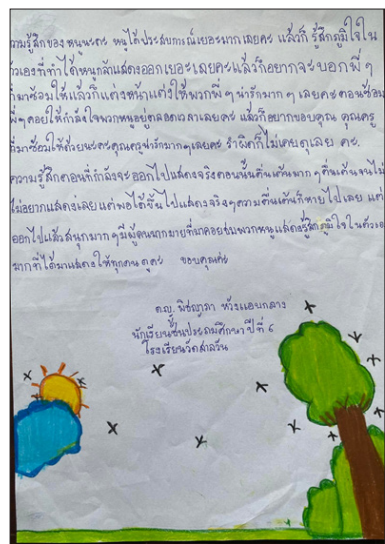 วามรู้สึกของหนูนะคะ หนูได้ประสบการณ์เยอะมากเลยคะ แล้วก็ รู้สึกภูมิใจใน
ัวเองที่ทำได้หนูกล้าแสดงออกเยอะเลยคะแล้วก็อยากจะบอกพี่ๆ
ี่มาซ้อมให้แล้วก็แต่งหน้าแต่งให้พวกพี่ๆน่ารักมากๆ เลยคะตอนซ้อม
พี่ๆคอยให้กำลังใจพวกหนูอยู่ตลอดเวลาเลยคะ แล้วก็อยากขอบคุณ คุณครู
ี่มาซ้อมให้ด้วยนะคะคุณครูน่ารักมากๆเลยคะ รำผิดก็ไม่เคยดุเลย คะ.
ความรู้สึกตอนที่กำลังจะออกไปแสดงจริงตอนนั้นตื่นเต้นมากๆตื่นเต้นจนไม่
ไม่อยากแสดงเลยแต่พอได้ขึ้นไปแสดงจริงๆความตื่นเต้นก็หายไปเลย แต่
ออกไปแล้วสนุกมากๆมีผู้คนมากมายที่มาคอยชมพวกหนูแสดงรู้สึกภูมิใจในตัวเอ
มากที่ได้มาแสดงให้ทุกคนดูคะ ขอบคุณค่ะ
ด.ญ. พิชญาภา หวังแอบกลาง
นักเรียนชั้นประถมศึกษาปีที่ 6
โรงเรียนวัดศาลวัน